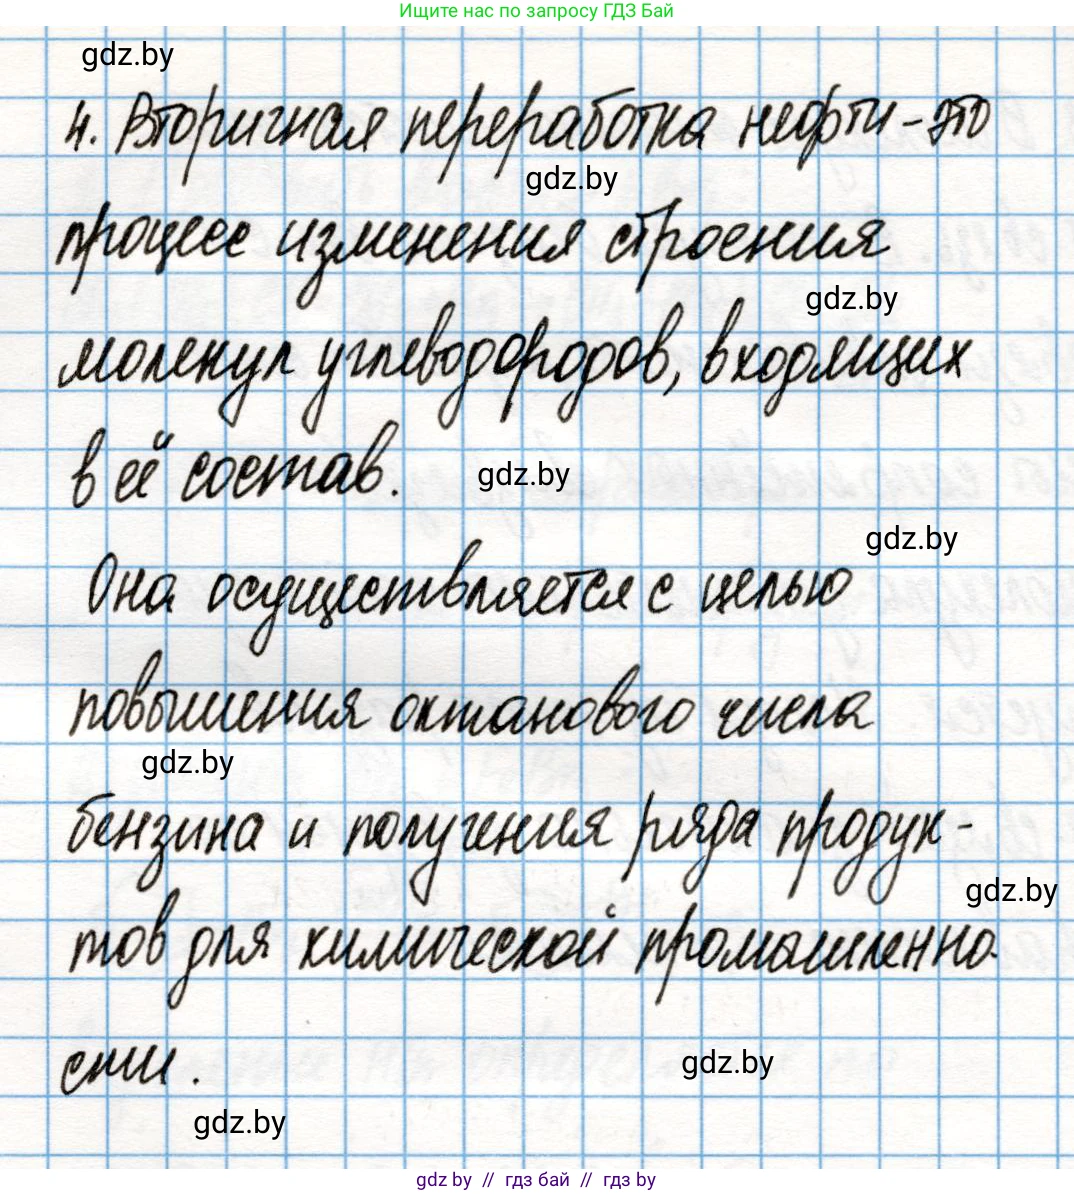 Ищите нас по запросу ГДЗ Бай
gdz.by
4. Вторичная переработка нефти - это
gdz.by
процесс изменения строения
gdz.by
молекул углеводородов, входящих
в её состав.
gdz.by
gdz.by
Она осуществляется с целью
повышения октанового числа
gdz.by
бензина и получения ряда продук-
gdz.by
тов для химической промышленно-
сти.
gdz.by
gdz.by
gdz.by // гдз бай // гдз by